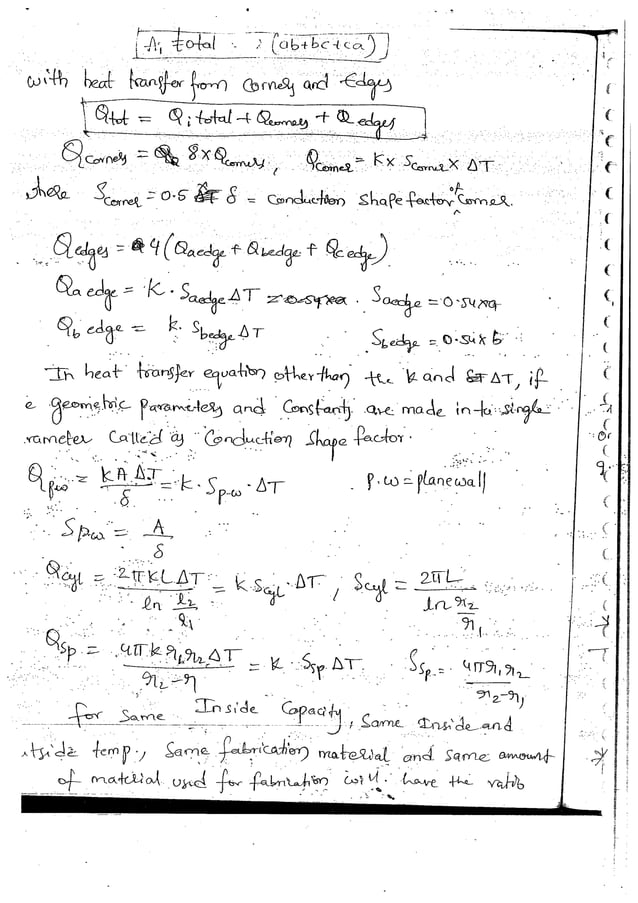 A, total : (ab+bc+ca)
with heat transfer from corners and Edges
Qtot = Qi total + Qcorners + Q edges
Qcorners = 8 x Qcorners, Qcorner = K x Scorner x ΔT
where Scorner = 0.5 δ = conduction shape factor of corner.
Qedges = 4 (Qaedge + Qbedge + Qc edge)
Qa edge = K. Saedge ΔT = 0.54xa. Saedge = 0.54xa
Qb edge = k. Sbedge ΔT Sbedge = 0.54 x b
In heat transfer equation other than the k and ΔT, if
e geometric parameters and constants are made in to single
rameter called as Conduction Shape factor.
Qpw = KA ΔT / δ = k. Sp.w. ΔT P.w = plane wall
Spw = A / δ
Qcyl = 2πKLΔT / ln r2/r1 = K Scyl. ΔT, Scyl = 2πL / ln r2/r1
Qsp = 4πk r1 r2 ΔT / r2-r1 = k Ssp. ΔT. Ssp. = 4πr1 r2 / r2-r1
for same Inside Capacity, Same Inside and
utside temp., Same fabrication material and same amount
of material used for fabrication will have the ratio